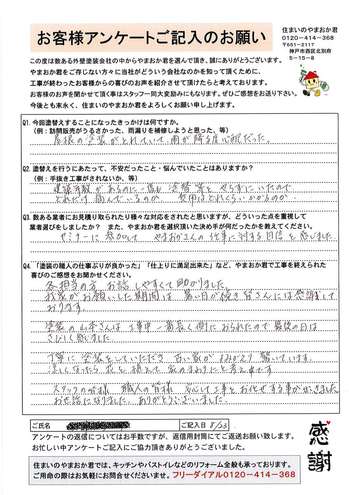 お客様アンケートご記入のお願い
住まいのやまおか君
0120-414-368
〒651-2117
神戸市西区北別府
5-15-8
この度は数ある外壁塗装会社の中からやまおか君を選んで頂き、誠にありがとうございます。
やまおか君をご存じない方々に当社がどういう会社なのかを知って頂くために、
工事が終わったお客様からの喜びのお声を紹介させて頂けたらと考えております。
お客様のお声を聞かせて頂く事はスタッフ一同大変励みになります。ぜひご感想をお送り下さい。
今後とも末永く、住まいのやまおか君をよろしくお願い申し上げます。
Q1. 今回塗替えすることになったきっかけは何ですか。
(例：訪問販売がうるさかった、雨漏りを補修しようと思った、等)
屋根の塗装がとれていて、雨が降る度心配だった。
Q2. 塗替えを行うにあたって、不安だったこと・悩んでいたことはありますか？
(例：手抜き工事がされないか、等)
建築年数があるのに一度も塗替等をせずにいたので
どれだけ痛んでいるのか 費用はどれくらいかかるのか
Q3. 数ある業者にお見積り取られたり様々な対応をされたと思いますが、どういった点を重視して
業者選びをしましたか？ また、やまおか君を選択頂いた決め手が何だったかをお教え下さい。
セミナーに参加して やまおかさんの仕事に対する自信を感じました
Q4. 「塗装の職人の仕事ぶりが良かった」「仕上りに満足出来た」など、やまおか君で工事を終えられた
喜びのご感想をお聞かせください。
各担当の方、お話しやすくて助かりました。
我家がお願いした期間は 暑い日が続き皆さんには感謝して
おります。
塗装の山本さんは工事中一番長く側におられたので最後の日は
さびしく感じました。
丁寧に塗装をしていただき 古い家が よみがえり 驚いています。
スタッフの皆様 職人の皆様 安心して工事をお任せする事ができました
お世話になりました。ありがとうございました。
ご氏名
ご記入日 8/23
アンケートの返信についてはお手数ですが、返信用封筒にてご返送お願い致します。
お忙しい中アンケートにご協力頂きありがとうございました。
感謝
住まいのやまおか君では、キッチンやバストイレなどのリフォーム全般も承っております。
ご用命の際はお気軽にお問合せくださいませ。フリーダイアル0120-414-368